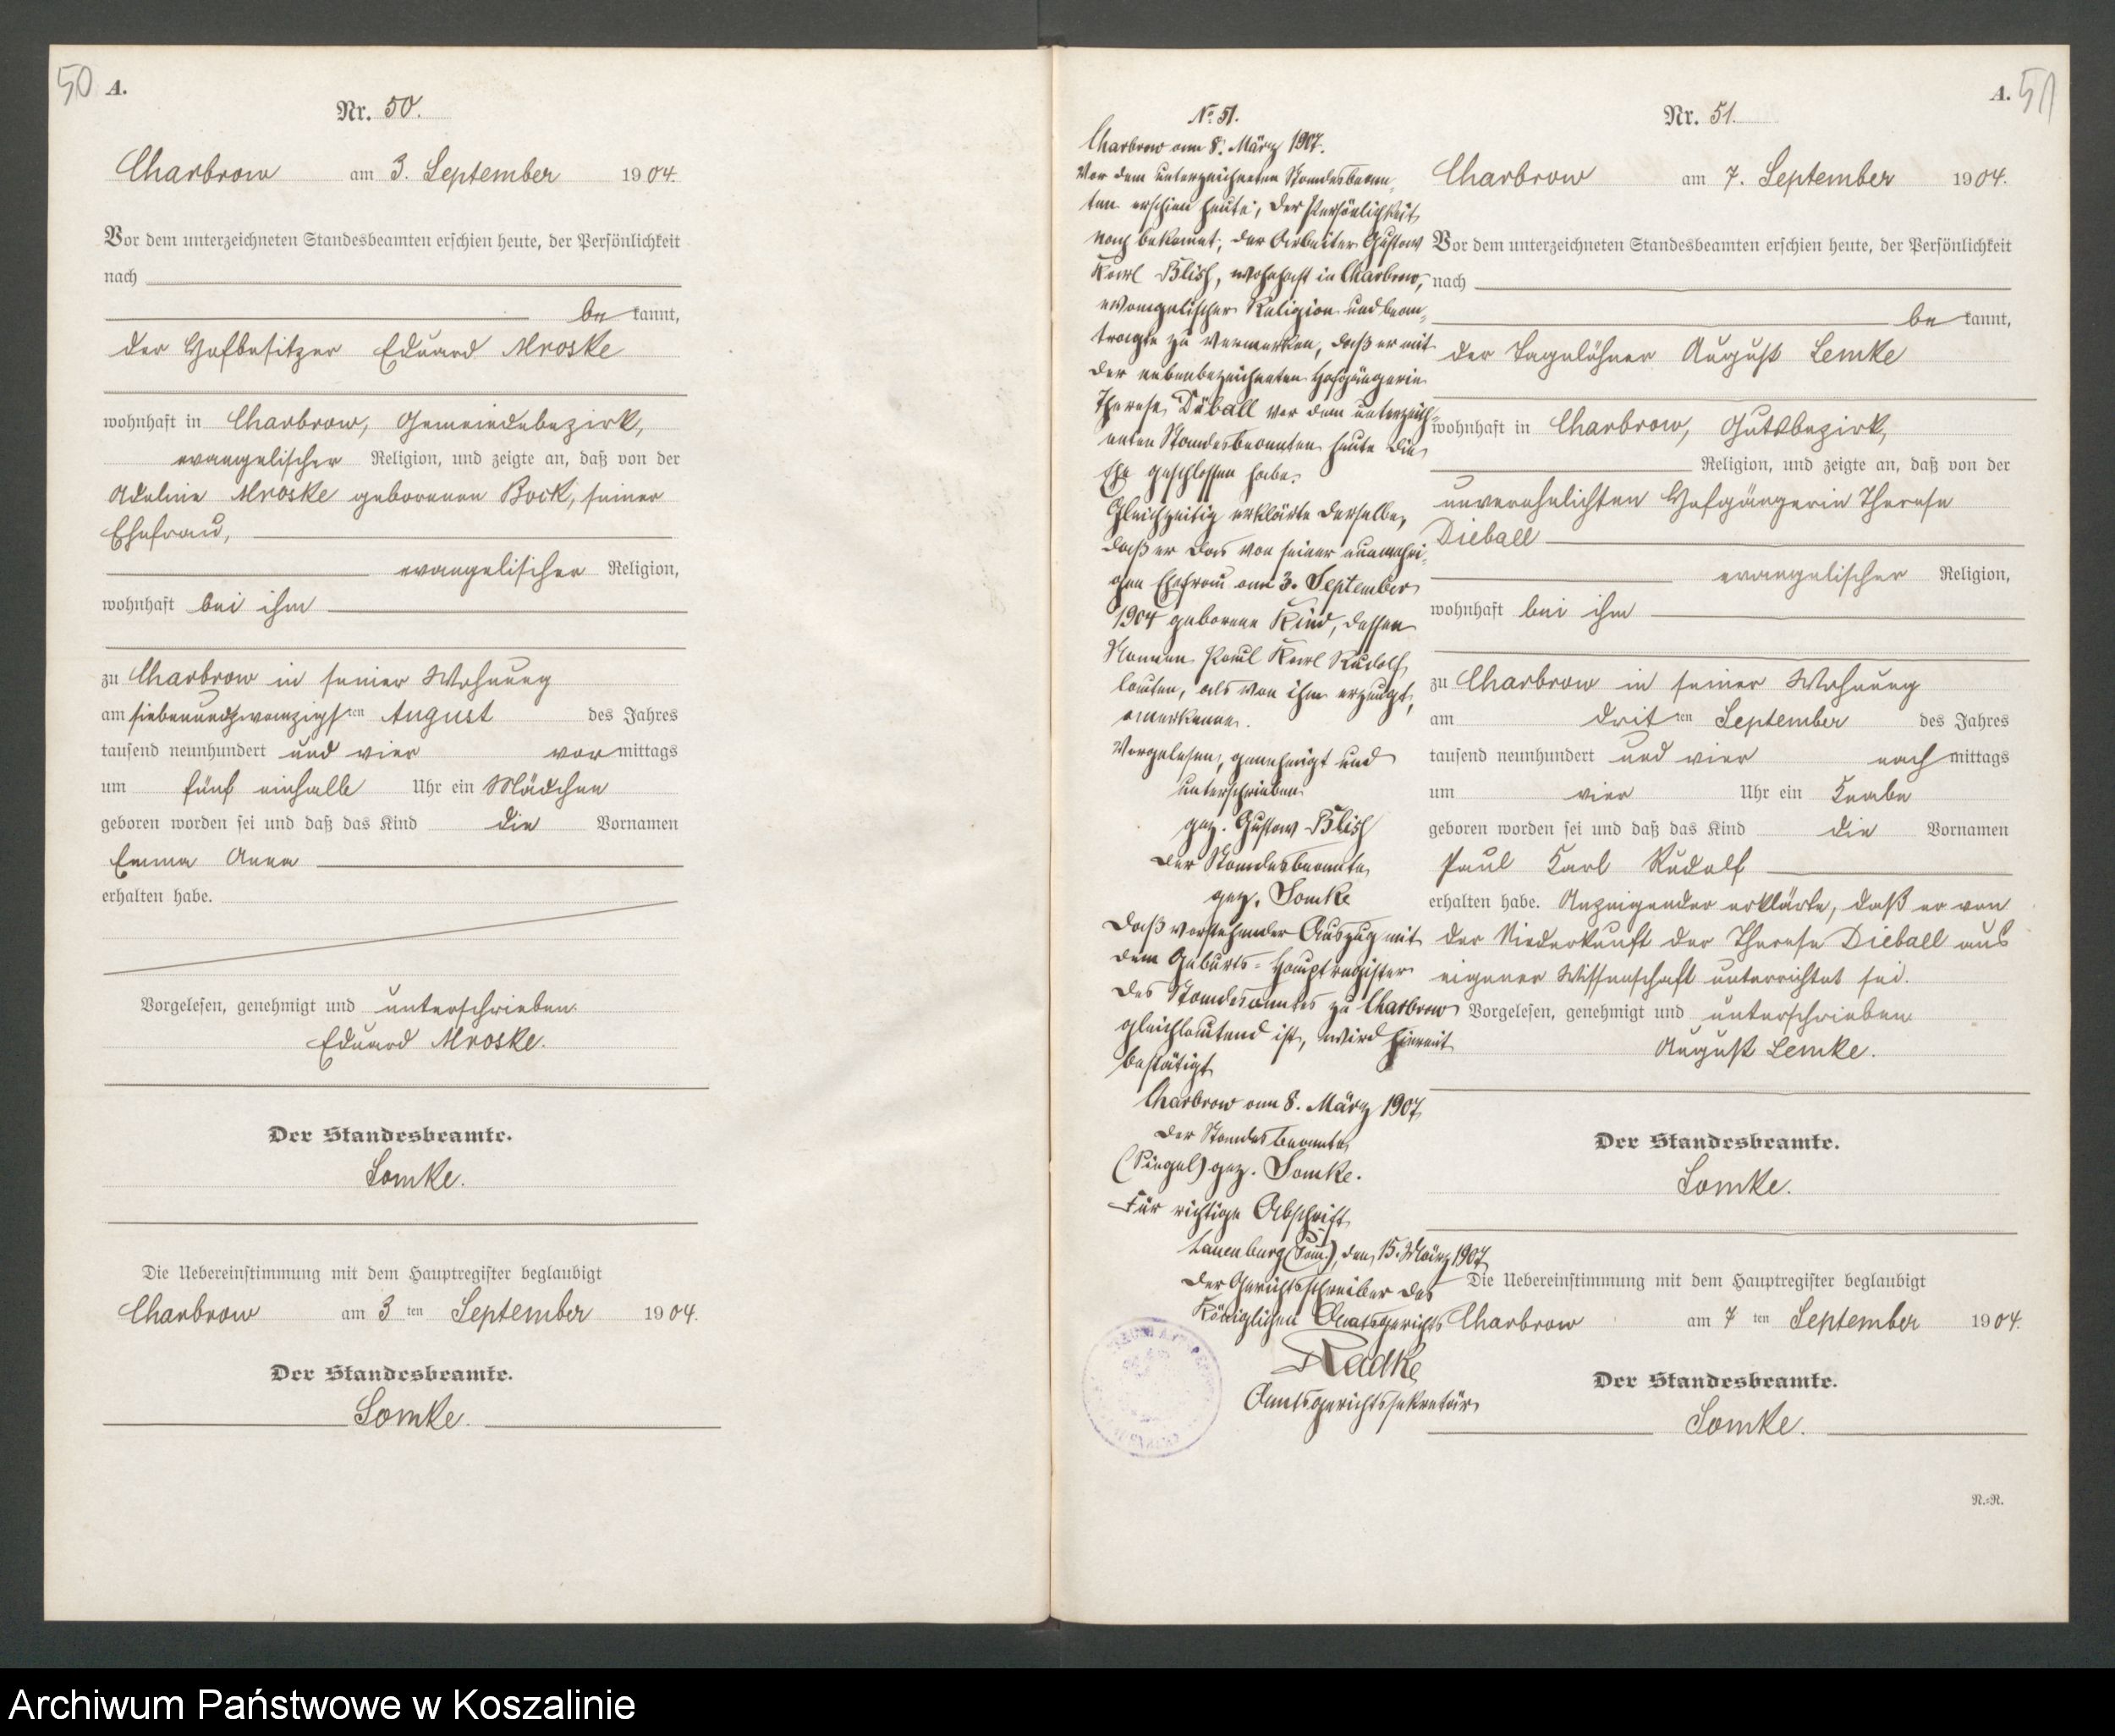 50 A.
Nr. 50.
Charbrow am 3. September 1904.
Vor dem unterzeichneten Standesbeamten erschien heute, der Persönlichkeit
nach
be kannt,
der Hofbesitzer Eduard Mroske
wohnhaft in Charbrow, Gemeindebezirk,
evangelischer Religion, und zeigte an, daß von der
Adeline Mroske geborenen Bock, seiner
Ehefrau,
evangelischer Religion,
wohnhaft bei ihm
zu Charbrow in seiner Wohnung
am siebenundzwanzigsten August des Jahres
tausend neunhundert und vier vor mittags
um fünf einhalb Uhr ein Mädchen
geboren worden sei und daß das Kind die Vornamen
Emma Anna
erhalten habe.
Vorgelesen, genehmigt und unterschrieben.
Eduard Mroske.
Der Standesbeamte.
Somke.
Die Uebereinstimmung mit dem Hauptregister beglaubigt
Charbrow am 3 ten September 1904.
Der Standesbeamte.
Somke.
No 51.
Charbrow am 8. März 1907.
Vor dem unterzeichneten Standesbeam-
ten erschien heute, der Persönlichkeit
nach bekannt, der Arbeiter Gustav
Karl Blisch, wohnhaft in Charbrow,
evangelischer Religion und bean-
tragte zu vermerken, daß er mit
der nebenbezeichneten Hofgängerin
Therese Dieball vor dem unterzeich-
neten Standesbeamten heute die
Ehe geschlossen habe.
Gleichzeitig erklärte derselbe,
daß er das von seiner nunmehri-
gen Ehefrau am 3. September
1904 geborene Kind, dessen
Namen Paul Karl Rudolf
lauten, als von ihm erzeugt,
anerkenne.
Vorgelesen, genehmigt und
unterschrieben
gez. Gustav Blisch
Der Standesbeamte
gez. Somke
Daß vorstehender Auszug mit
dem Geburts-Hauptregister
des Standesamtes zu Charbrow
gleichlautend ist, wird hiermit
bestätigt
Charbrow am 8. März 1907
Der Standesbeamte
(Siegel) gez. Somke.
Für richtige Abschrift
Lauenburg (Pom.), den 15. März 1907
Der Gerichtsschreiber des
Königlichen Amtsgerichts
Radke
Amtsgerichtssekretär
A. 51
Nr. 51.
Charbrow am 7. September 1904.
Vor dem unterzeichneten Standesbeamten erschien heute, der Persönlichkeit
nach
be kannt,
der Tagelöhner August Lemke
wohnhaft in Charbrow, Gutsbezirk,
Religion, und zeigte an, daß von der
unverehelichten Hofgängerin Therese
Dieball
evangelischer Religion,
wohnhaft bei ihm
zu Charbrow in seiner Wohnung
am dritten September des Jahres
tausend neunhundert und vier nach mittags
um vier Uhr ein Knabe
geboren worden sei und daß das Kind die Vornamen
Paul Karl Rudolf
erhalten habe. Anzeigender erklärte, daß er von
der Niederkunft der Therese Dieball aus
eigener Wissenschaft unterrichtet sei.
Vorgelesen, genehmigt und unterschrieben
August Lemke.
Der Standesbeamte.
Somke.
Die Uebereinstimmung mit dem Hauptregister beglaubigt
Charbrow am 7 ten September 1904.
Der Standesbeamte.
Somke.
N.-N.
Archiwum Państwowe w Koszalinie